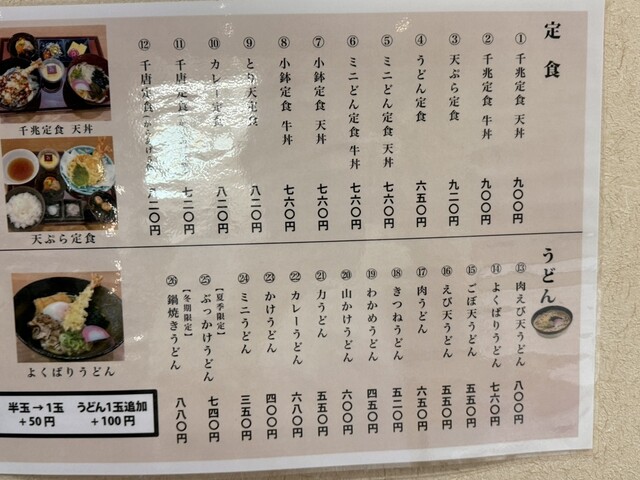 定食
① 千兆定食 天丼 九〇〇円
② 千兆定食 牛丼 九〇〇円
③ 天ぷら定食 九二〇円
④ うどん定食 六五〇円
⑤ ミニどん定食 天丼 七六〇円
⑥ ミニどん定食 牛丼 七六〇円
⑦ 小鉢定食 天丼 七六〇円
⑧ 小鉢定食 牛丼 七六〇円
⑨ とり天定食 八二〇円
⑩ カレー定食 八二〇円
⑪ 千唐定食 七二〇円
⑫ 千唐定食 八二〇円
千兆定食 天丼
天ぷら定食
うどん
⑬ 肉えび天うどん 八〇〇円
⑭ よくばりうどん 七六〇円
⑮ ごぼ天うどん 五五〇円
⑯ えび天うどん 六五〇円
⑰ 肉うどん 六五〇円
⑱ きつねうどん 五二〇円
⑲ わかめうどん 四五〇円
⑳ 山かけうどん 六〇〇円
㉑ 力うどん 五五〇円
㉒ カレーうどん 六八〇円
㉓ かけうどん 四〇〇円
㉔ ミニうどん 三五〇円
㉕ 【夏季限定】ぶっかけうどん 七四〇円
㉖ 【冬期限定】鍋焼きうどん 八八〇円
よくばりうどん
半玉→1玉 うどん1玉追加
+50円 +100円